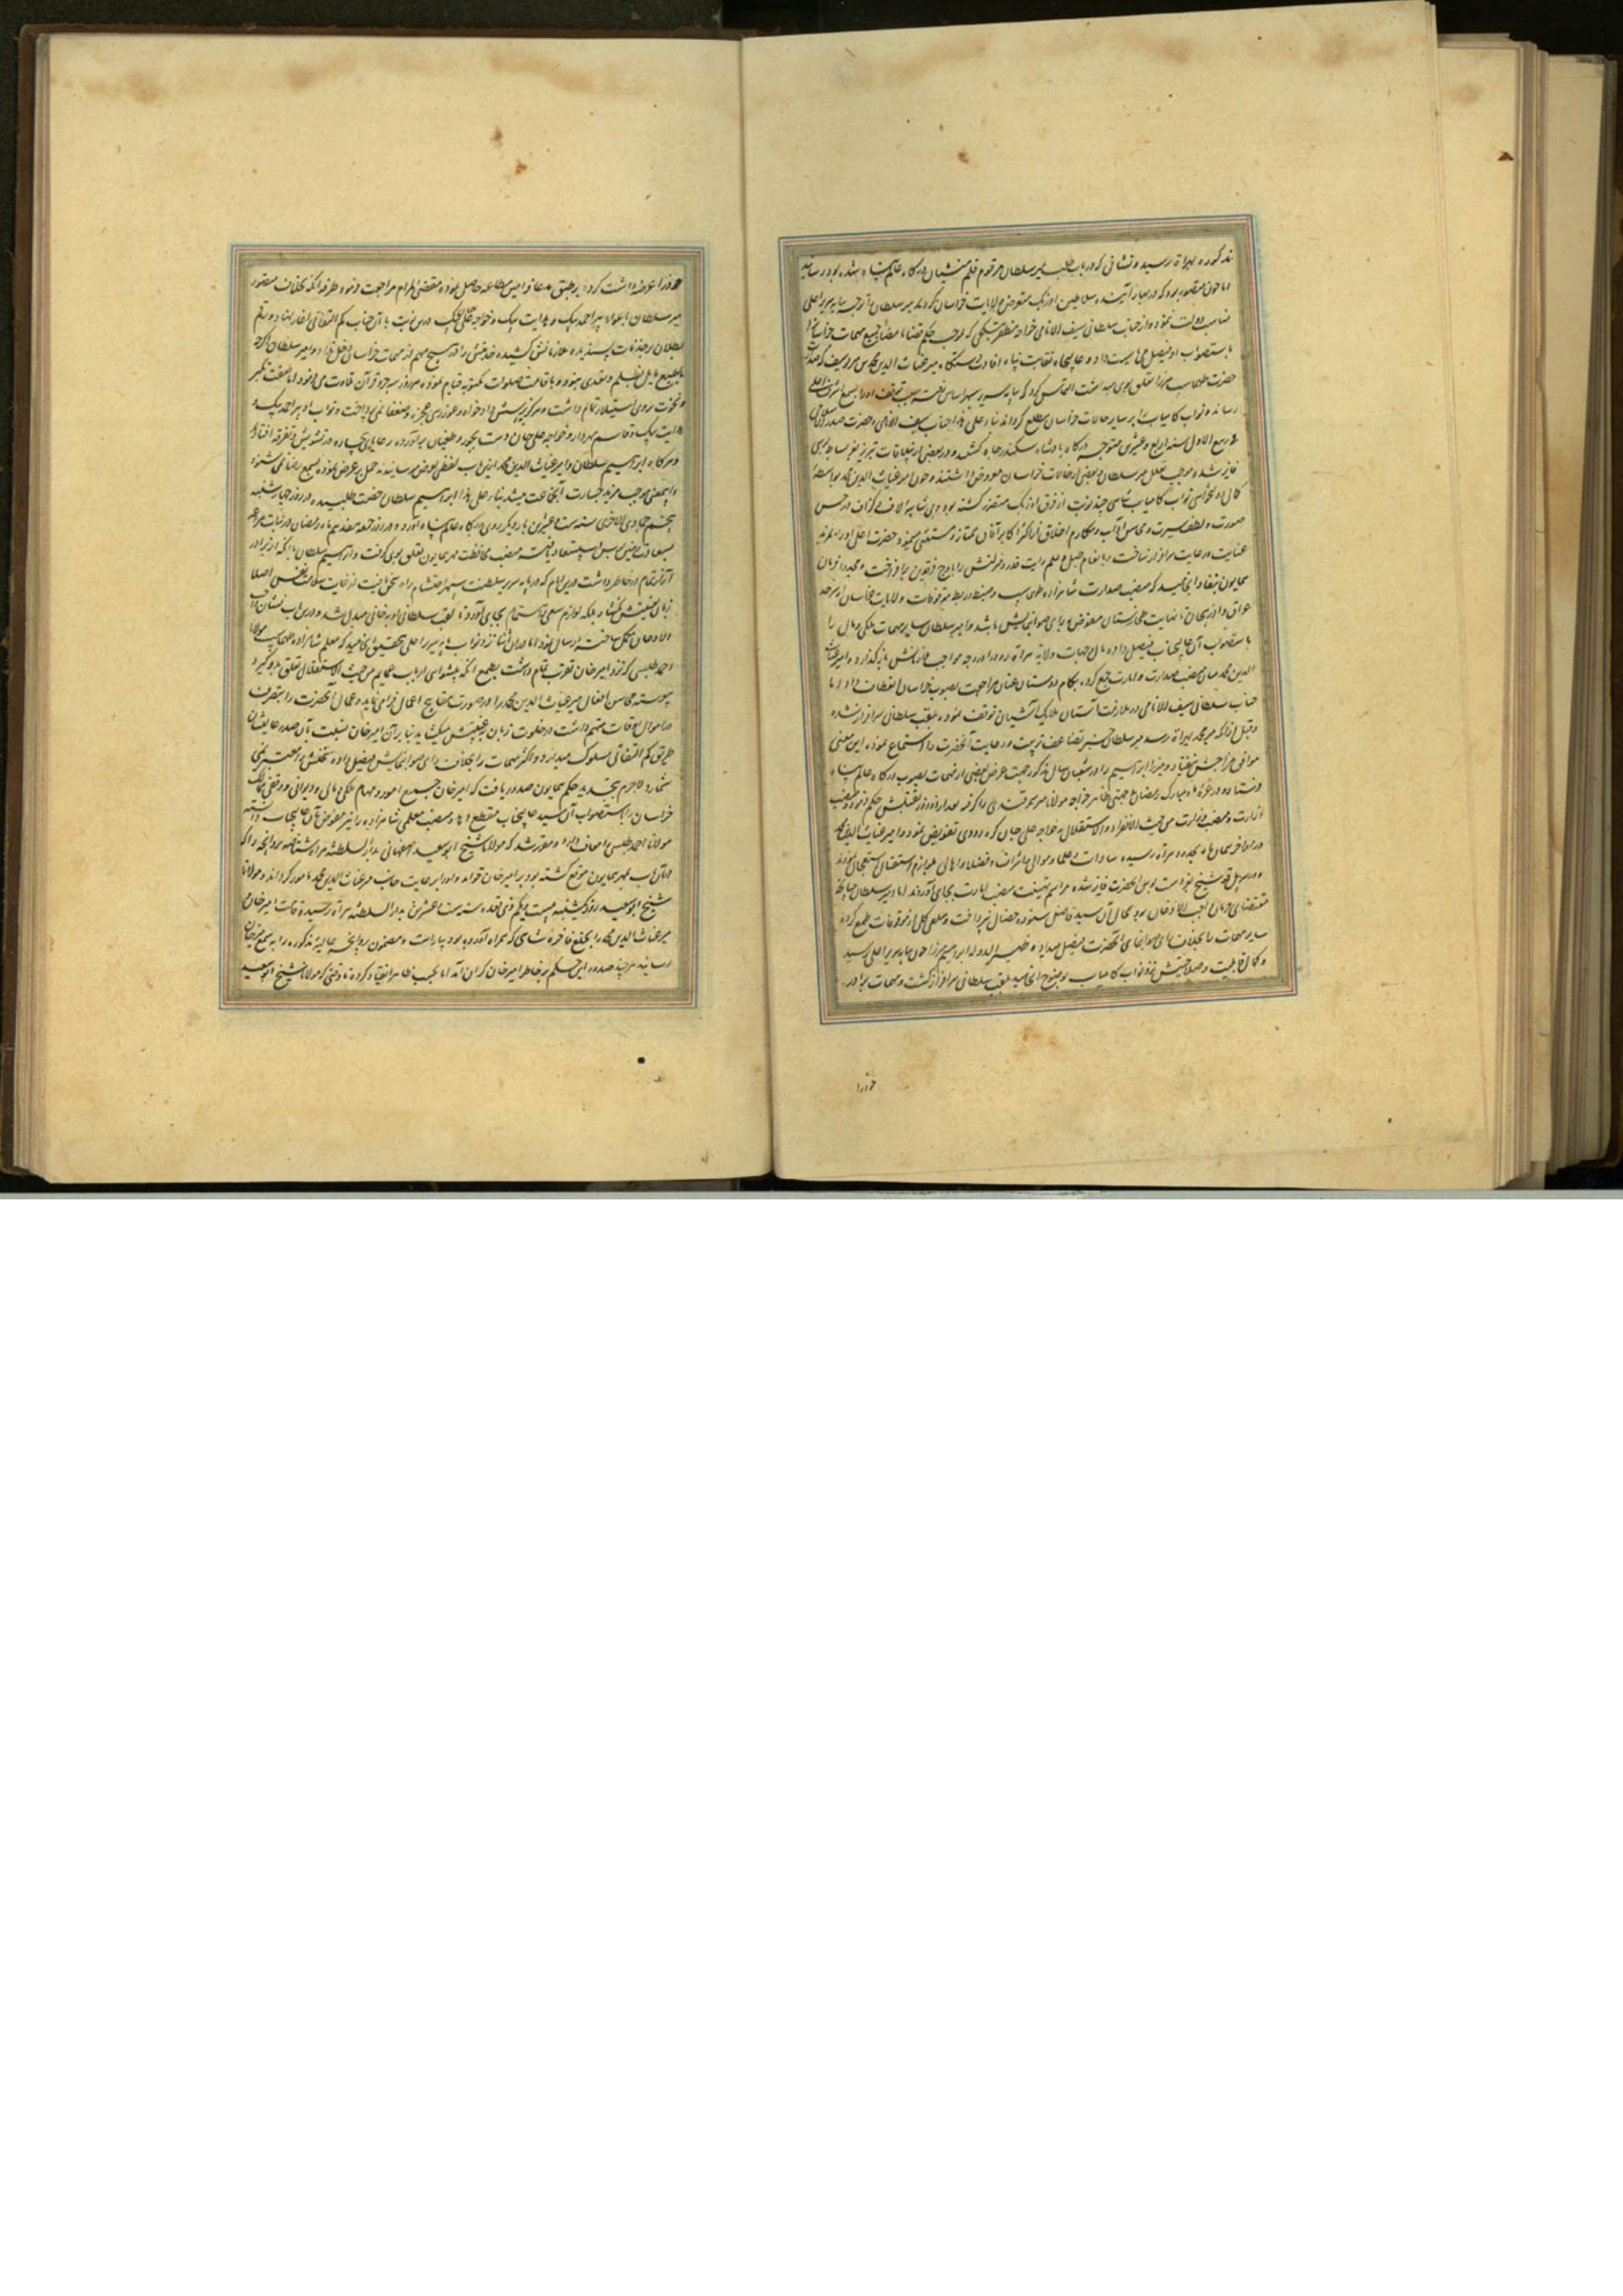 مذکوره بهراة رسید و نشانی که در باب طلب میر سلطان مرقوم قلم منشیان درگاه عالم پناه شده بود رسانید
اما چون متصور بود که در بهار آینده سلاطین اوزبک متعرض ولایات خراسان گردند میر سلطان توجه بپایه سریر اعلی
مناسب دولت ننموده و از جناب سلطانی سیف الانامی خواجه مظفر تبکچی که بموجب حکم قضا امضا جمیع مهمات خراسان
باستصواب او فیصل می بایست داد و عالیجاه نقابت پناه افادت دستگاه میر غیاث الدین محمد بن میر یوسف که صدارت
حضرت طهماسب میرزا تعلق بوی میداشت التماس کرد که بپایه سریر سپهر اساس رفته سبب توقف او را بسمع اشرف اعلی
رسانند و نواب کامیاب را بر سایر حالات خراسان مطلع گردانند بناء علی هذا جناب سیف الانامی و حضرت صدارت
در ربیع الاول سنه اربع و عشرین متوجه درگاه پادشاه سکندر جاه گشتند و در بعضی از ییلاقات تبریز بعز بساط بوسی
فایز شده موجب تعلل میر سلطان و بعضی از حالات خراسان معروض داشتند و چون امیر غیاث الدین محمد بواسطه
صورت و لطف سیرت و محاسن آداب و مکارم اخلاق از اکثر اکابر آفاق ممتاز و مستثنی مینمود حضرت اعلی او را بمزید
عنایت و رعایت سرافراز ساخت و بانعام طبل و علم رایت قدر و منزلتش را باوج فرقدین برافراخت و مجددا فرمان
همایون بنفاذ انجامید که منصب صدارت شاهزاده طهماسب و ضبط و ربط موقوفات ولایات خراسان از سرحد
عراق و آذربیجان تا نهایت طخارستان مفوض برای صواب نمایش باشد و امیر سلطان سایر مهمات ملکی و مالی را
باستصواب آن عالیجناب فیصل داده مال و جهات ولایة هراة رود را در وجه مواجب ملازمانش بازگذارد و امیر غیاث
الدین محمد میان منصب صدارت و امارت جمع کرده بکام دوستان عنان مراجعت بصوب خراسان انعطاف داد اما
جناب سلطانی سیف الانامی در ملازمت آستان ملایک آشیان توقف نموده بلقب سلطانی سرافراز شد
و قبل از آنکه میر محمد بهراة رسد میر سلطان خبر تضاعف تربیت و رعایت آنحضرت را استماع نموده این معنی
موافق مزاجش نیفتاد و میرزا ابراهیم را در شعبان سال مذکور جهت عرض بعضی از مهمات بصوب درگاه عالم پناه
فرستاد و در غره ماه مبارک رمضان خواجه مولانا میر سمرقندی را گرفته
از وزارت و منصب وزارت من حیث الانفراد و الاستقلال بخواجه علی جان کهرودی تفویض نمود و امیر غیاث الدین محمد
در اواخر همان ماه بحدود هراة رسیده سادات و علما و موالی و اشراف و فضلا و اهالی بلوازم استقبال استعجال نمودند
و در سر پل قوشیخ بعز دست بوس آنحضرت فایز شده مراسم تهنیت منصب امارت بجای آوردند اما امیر سلطان چنانچه
مقتضای زمان بود بحال آن سید فاضل ستوده خصال نپرداخت و مبلغی کلی از موقوفات طمع کرده
سایر مهمات را بخلاف رای صواب نمای آنحضرت فیصل میداد و ظهیر الدوله ابراهیم میرزا چون بپایه سریر اعلی رسید
و کمال قابلیت و صلاحیتش نزد نواب کامیاب بوضوح انجامید بلقب سلطانی سرافراز گشت و مهمات برادر
خود را
خود را عرضه داشت کرده بر طبق مدعا فرامین مطاعه حاصل نموده مقضی المرام مراجعت فرمود
میر سلطان باغوای پیر احمد بیک و هدایت بیک و خواجه علی بیک درین نوبت با آن جناب کم التفاتی آغاز نهاده رقم
بطلان بر خدمات پسندیده ملازمانش کشیده خدمتش را در هیچ مهم از مهمات خراسان دخل نداد و امیر سلطان اگرچه
بالطبع مایل بظلم و تعدی نبود و باقامت صلوات مکتوبه قیام نموده هر روز سه جزو قرآن تلاوت می فرمود اما صفت تکبر
و نخوت بر وی استیلاء تمام داشت و هرگز بپرسش دادخواه و غوررسی عجزه و ضعفا نمی پرداخت و نواب او پیر احمد بیک و
هدایت بیک و قاسم مهردار و خواجه علی جان دست بجور و طغیان برآورده رعایای بیچاره در تشویش و تفرقه افتادند
و هرگاه ابراهیم سلطان و امیر غیاث الدین محمد ازین باب لفظی بعرض میرسانیدند حمل بر غرض نموده بسمع رضا نمی شنود
و این معنی موجب مزید جسارت آن جماعت میشد بناء علی هذا ابراهیم سلطان رخصت طلبیده در روز چهارشنبه
پنجم جمادی الاخری سنه ست و عشرین بار دیگر روی بدرگاه عالم پناه آورد و در روز جمعه هفدهم ماه رمضان
بسعادت زمین بوس استسعاد یافته منصب محافظت مهر همایون تعلق بوی گرفت و ابراهیم سلطان با آنکه از برادر
آزار تمام در خاطر داشت درین ایام که در پایه سریر سلطنت سپهر احتشام راه سخن یافت از غایت سلامت نفس اصلا
زبان بغیبتش نگشاد بلکه لوازم سعی و اهتمام بجای آورد تا لقب سلطانی او بخانی مبدل شد و درین باب نشان
ساخته ارسال نمود اما در آن اثنا نزد نواب پایه سریر اعلی بتحقیق انجامید که معلم شاهزاده طهماسب مولانا
احمد طبسی که نزد امیر خان تقرب تمام داشت بطمع آنکه پیشوایی ارباب عمایم من حیث الاستقلال تعلق بدو گیرد
پیوسته محاسن افعال میر غیاث الدین محمد را در صورت مقابح اعمال فرا می نماید و عمال آنحضرت را بتصرف
در اموال اوقات متهم داشته در خلوت زبان بغیبتش میگشاید بنابرآن امیر خان نسبت بآن صدر عالیشان
طریق کم التفاتی مسلوک میدارد و اکثر مهمات را بخلاف رای صواب نمایش فیصل داده سخنش را معتبر نمی
شمارد لاجرم بتجدید حکم همایون صدور یافت که امیر خان جمیع امور و مهام ملکی و مالی و دیوانی و وقفی ممالک
خراسان را باستصواب آن سید عالیجناب منقطع دارد و منصب معلمی شاهزاده را نیز مفوض بآن عالیجناب دانسته
مولانا احمد طبسی را معاف دارد و مقرر شد که مولانا شیخ ابو سعید اصفهانی بدار السلطنه هراة شتافته پروانچه را که
در آن باب بمهر همایون موقع گشته بود بر امیر خان خواند و او را برعایت جانب میر غیاث الدین محمد مامور گرداند و مولانا
شیخ ابو سعید روز یکشنبه بیست و یکم ذی قعده سنه ست و عشرین بدار السلطنه هراة رسیده قامت امیر خان
میر غیاث الدین محمد را بخلع فاخره شاهی که همراه آورده بود بیاراست و مضمون پروانچه عالیه مذکوره را بسمع میر خان
رسانید هر چند صدور این حکم بر خاطر امیر خان گران آمد اما بحسب ظاهر انقیاد کرده تا وقتی که مولانا شیخ ابو سعید